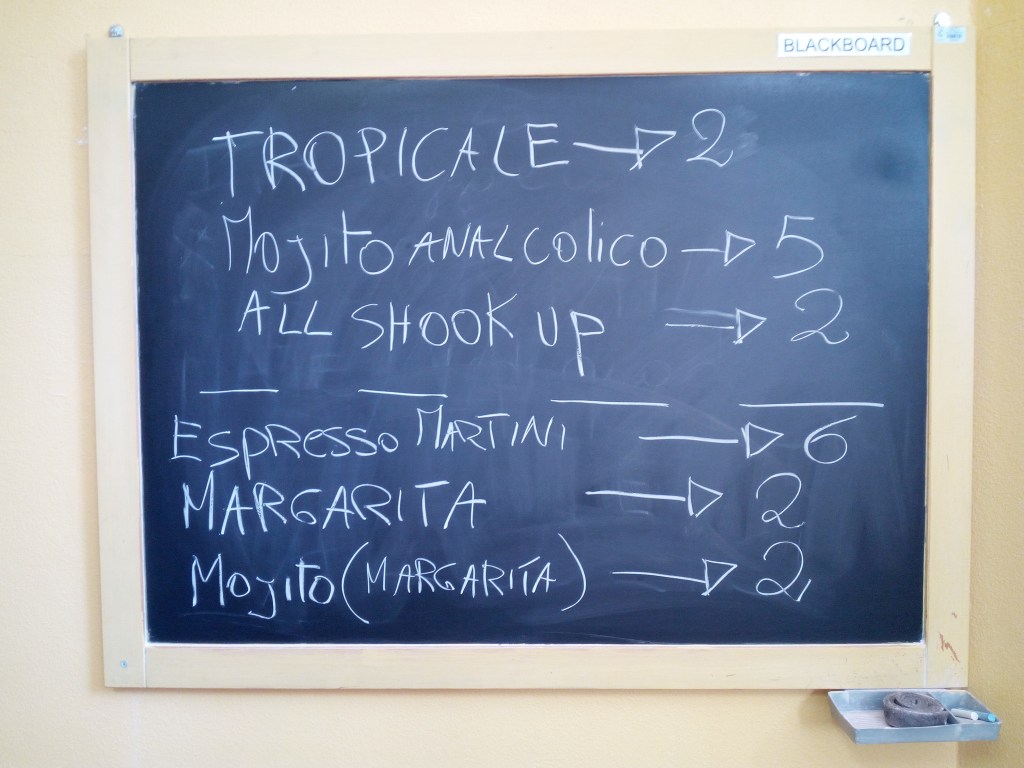 BLACKBOARD
TROPICALE → 2
MOJITO ANALCOLICO → 5
ALL SHOOK UP → 2
ESPRESSO MARTINI → 6
MARGARITA → 2
MOJITO (MARGARITA) → 2